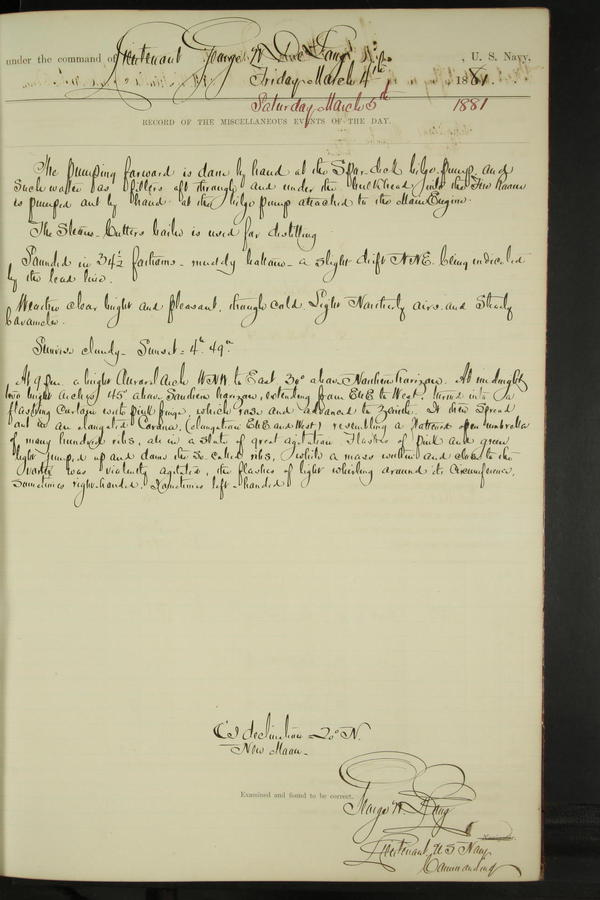 under the command of Lieutenant George W. De Long, U. S. Navy,
Friday, March 4th, 1881.
Saturday March 5th 1881
RECORD OF THE MISCELLANEOUS EVENTS OF THE DAY.
The pumping forward is done by hand at the Spar deck bilge pump, and
Such water as filters aft through and under the bulkhead into the Fire Room
is pumped out by hand at the bilge pump attached to the Main Engine.
The Steam-Cutters boiler is used for distilling
Sounded in 34½ fathoms - muddy bottom - a slight drift NNE. being indicated
by the lead line.
Weather clear bright and pleasant, though cold. Light Northerly airs and Steady
barometer.
Sunrise cloudy - Sunset - 4h. 49m.
At 9 p.m. a bright Auroral Arch WNW to East 30° above Northern horizon. At midnight
two bright arches 45° above Southern horizon, extending from to West, turned into a
flashing curtain with pink fringe, which rose and advanced to zenith. It then Spread
out in an elongated Corona, (elongation and West) resembling a open umbrella
of many hundred ribs, all in a state of great agitation. Flashes of pink and green
light jumped up and down the so called ribs, while a mass within and close to the
was violently agitated, the flashes of light whirling around its Circumference,
Sometimes right-handed, Sometimes left-handed
☾'s declination 20° N.
New Moon -
Examined and found to be correct.
George W. De Long
Lieutenant, U S Navy
Commanding